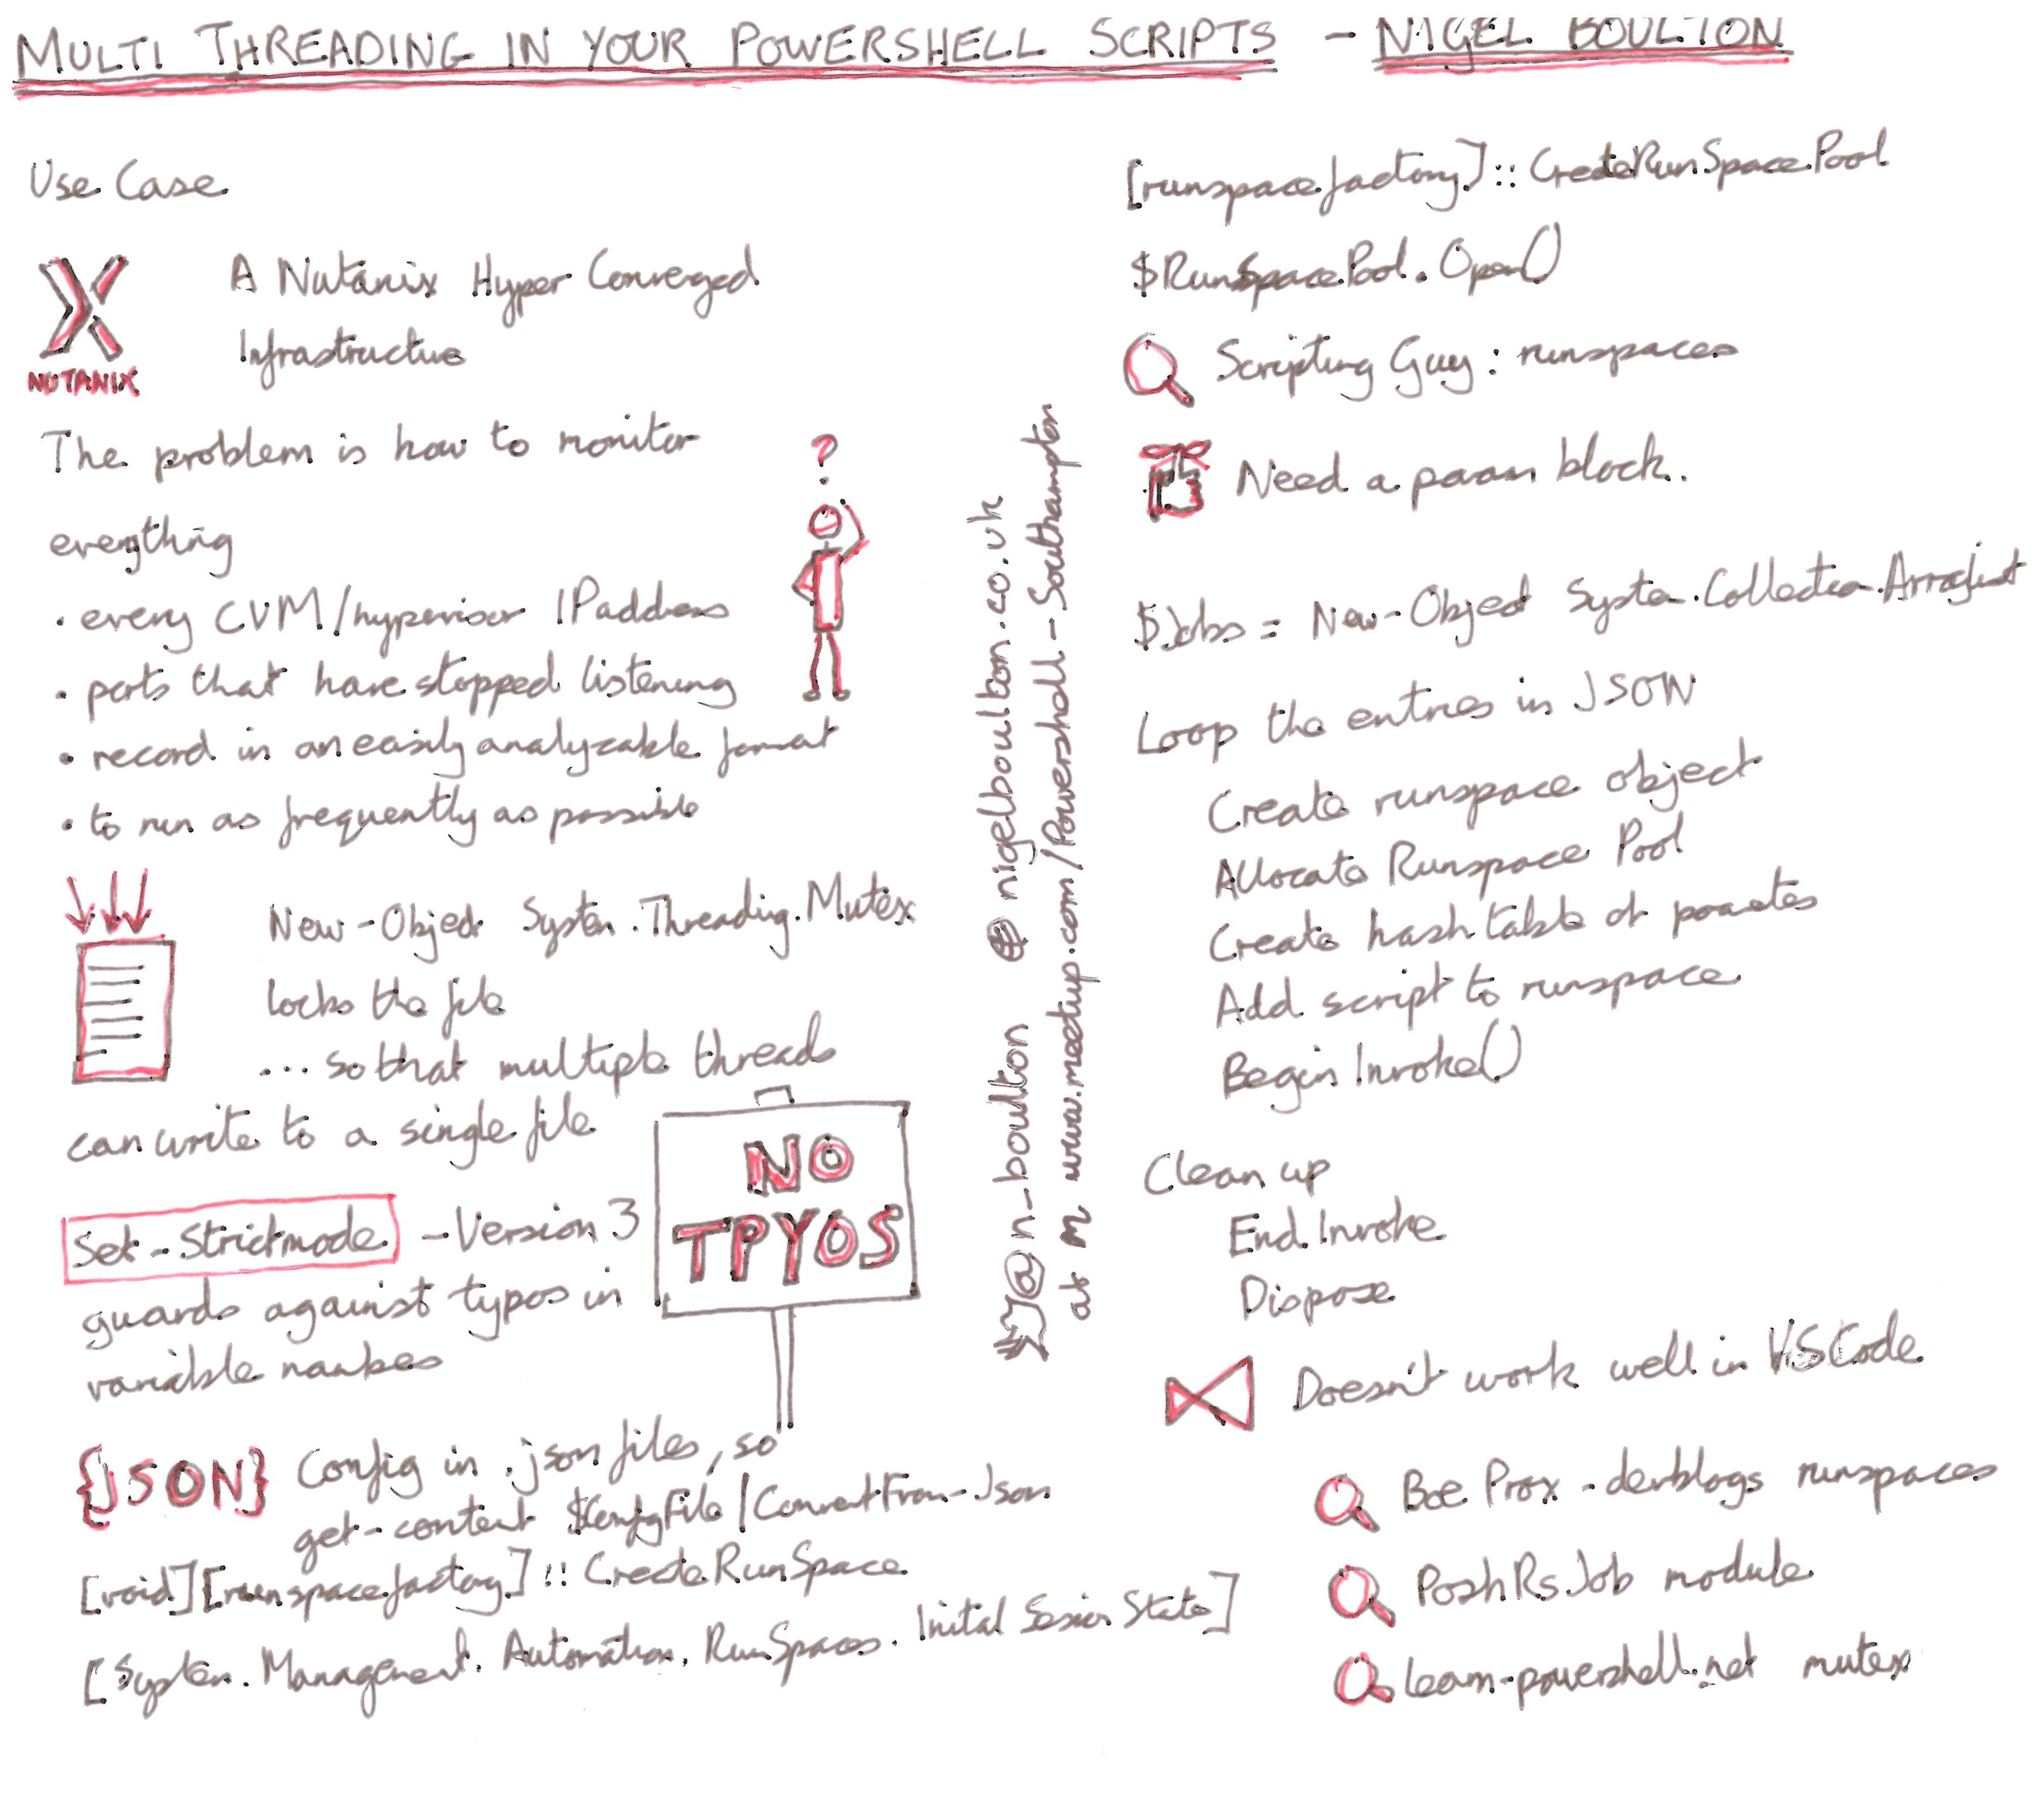 MULTI THREADING IN YOUR POWERSHELL SCRIPTS - NIGEL BOULTON
Use Case
NUTANIX
A Nutanix Hyper Converged
Infrastructure
The problem is how to monitor
everything
?
• every CVM/hypervisor IP address
• ports that have stopped listening
• record in an easily analyzable format
• to run as frequently as possible
New-Object System.Threading.Mutex
locks the file
... so that multiple threads
can write to a single file
Set-Strictmode -Version 3
guards against typos in
variable names
NO
TPYOS
{JSON} Config in .json files, so
get-content $ConfigFile | ConvertFrom-Json
[void][runspacefactory]::CreateRunSpace
[System.Management.Automation.RunSpaces.Inital Session State]
@n_boulton nigelboulton.co.uk
at m www.meetup.com/Powershell-Southampton
[runspacefactory]::CreateRunSpacePool
$RunSpacePool.Open()
Scripting Guy: runspaces
Need a param block.
$Jobs = New-Object System.Collection.ArrayList
Loop the entries in JSON
Create runspace object
Allocate Runspace Pool
Create hash table of
Add script to runspace
Begin Invoke()
Clean up
End Invoke
Dispose
Doesn't work well in VSCode
Boe Prox - devblogs runspaces
PoshRsJob module
learn-powershell.net mutex